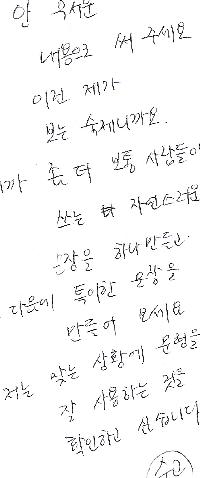 안 무서운
내용으로 써 주세요
이건 제가
보는 숙제니까요.
까 좀 더 보통 사람들이
쓰는 자연스러운
문장을 하나 만들고.
다음에 특이한 문장을
만들어 보세요
저는 맞는 상황에 문형을
잘 사용하는 것을
확인하고 싶습니다
수고